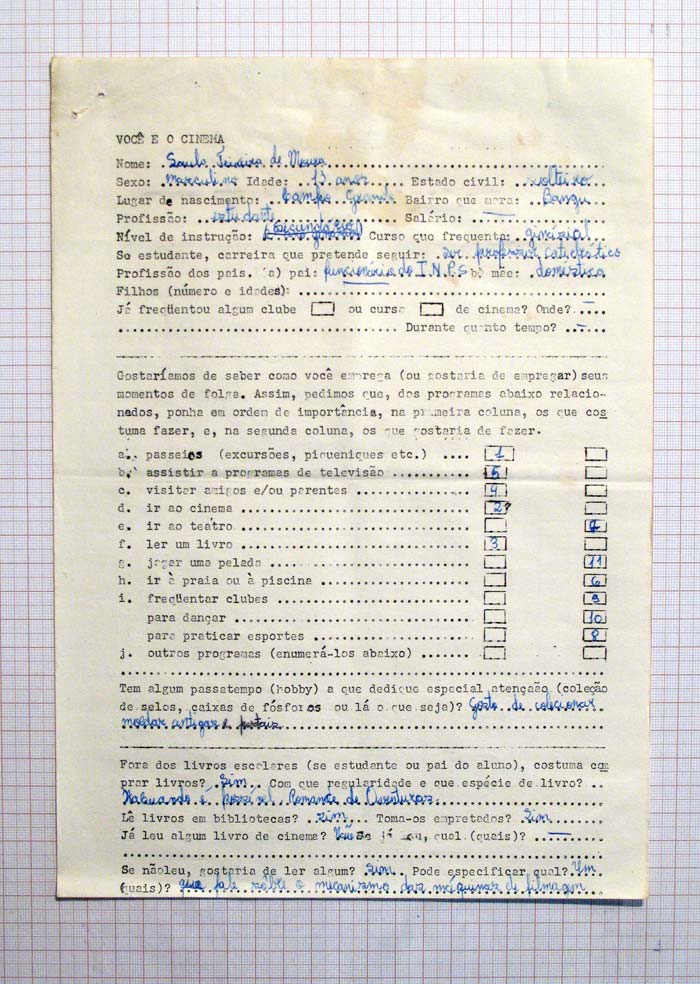 VOCÊ E O CINEMA
Nome: Saulo Teixeira de Moura
Sexo: masculino Idade: 13 anos Estado civil: solteiro
Lugar de nascimento: Campo Grande Bairro que mora: Bangu
Profissão: estudante Salário: —
Nível de instrução: (secundário) Curso que frequenta: ginásial
Se estudante, carreira que pretende seguir: ser professor catedrático
Profissão dos pais. (a) pai: funcionário do I.N.P.S b) mãe: doméstica
Filhos (número e idades):
Já freqüentou algum clube ou curso de cinema? Onde? —
Durante quanto tempo? —
Gostaríamos de saber como você emprega (ou gostaria de empregar) seus
momentos de folga. Assim, pedimos que, dos programas abaixo relacio-
nados, ponha em ordem de importância, na primeira coluna, os que cos
tuma fazer, e, na segunda coluna, os que gostaria de fazer.
a. passeios (excursões, piqueniques etc.) .... 1
b. assistir a programas de televisão ............... 5
c. visitar amigos e/ou parentes .................... 4
d. ir ao cinema .................................... 2
e. ir ao teatro .................................... 7
f. ler um livro .................................... 3
g. jogar uma pelada ................................ 11
h. ir à praia ou à piscina ......................... 6
i. freqüentar clubes ............................... 9
para dançar ..................................... 10
para praticar esportes .......................... 8
j. outros programas (enumerá-los abaixo) .......
Tem algum passatempo (hobby) a que dedique especial atençaão (coleção
de selos, caixas de fósforos ou lá o que seja)? Gosto de colecionar
moldar antigas e postais
Fora dos livros escolares (se estudante ou pai do aluno), costuma com
prar livros? Sim. Com que regularidade e que espécie de livro? ..
quando é possível Romance de Aventuras
Lê livros em bibliotecas? sim Toma-os emprstados? Sim
Já leu algum livro de cinema? Não Se já leu, qual (quais)? —
Se nãoleu, gostaria de ler algum? sim Pode especificar qual? Um
(quais)? que fale sôbre o mecanismo das máquinas de filmagem